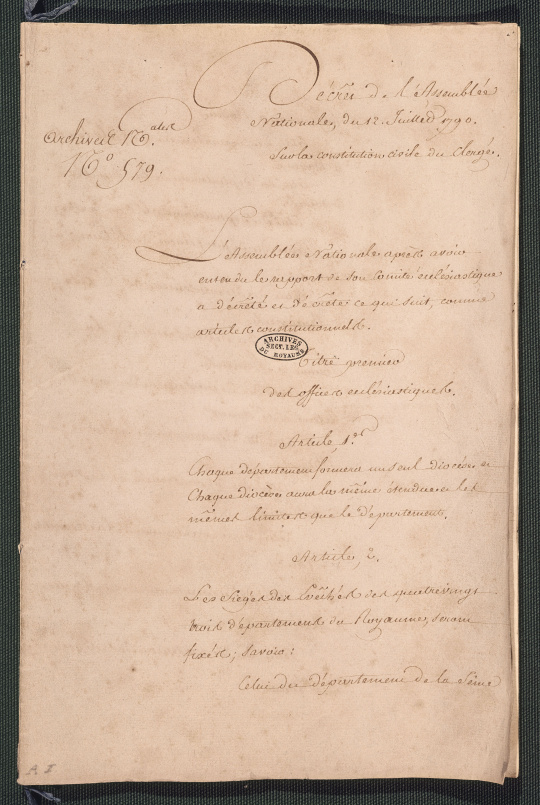 Décret de l'Assemblée
Nationale, du 12. Juillet 1790.
Sur la constitution civile du Clergé.
archives N.ales
N.o 579.
L'Assemblée Nationale après avoir
entendu le rapport de son Comité ecclésiastique
a décrété et décrète ce qui suit, comme
articles constitutionnels.
ARCHIVES
SECT. LEG.
DU ROYAUME
Titre premier
des offices ecclésiastiques.
Article 1.er
Chaque département formera un seul diocèse, et
Chaque diocèse aura la même étendue et les
mêmes limites que le département.
Article, 2.
Les Sièges des Evêchés des quatrevingt
trois départements du Royaume, seront
fixés; Savoir:
Celui du département de la Seine
A I